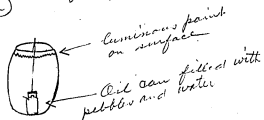 luminous paint
on surface
Oil can filled with
pebbles and water